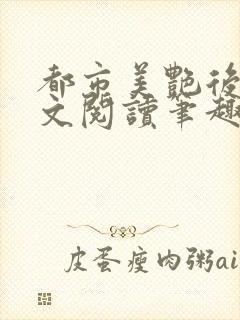 都市美艷後
文閱讀筆趣
皮蛋瘦肉粥ai